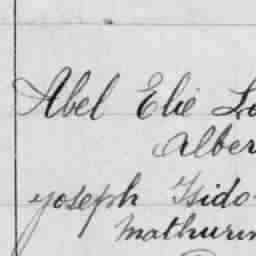 Abel Elie Lo
Alber
Joseph Isido
Mathurin